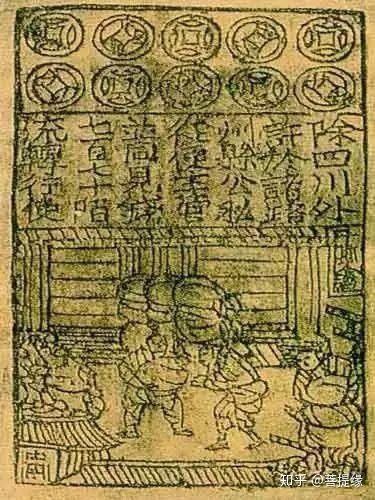 除四川外
許於諸路
州縣公私
從便主管
並同見錢
七百七十陌
流轉行使
知乎 @菩提缘